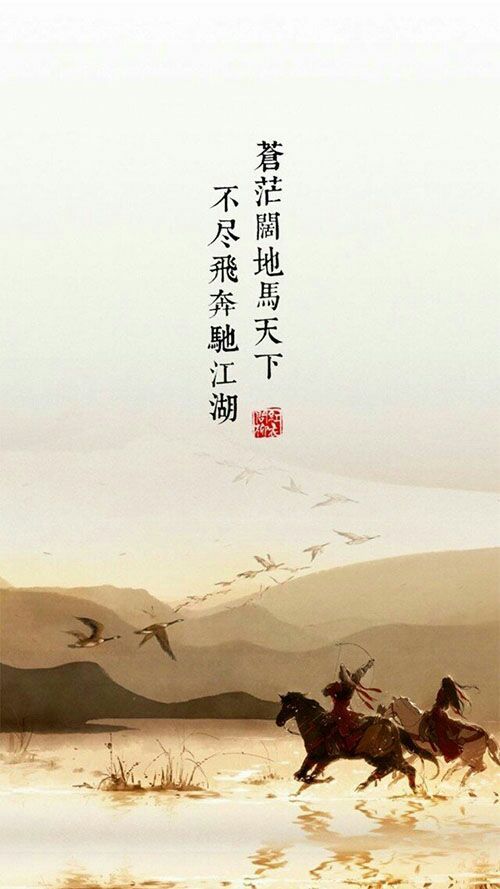 蒼茫闊地馬天下
不尽飛奔馳江湖